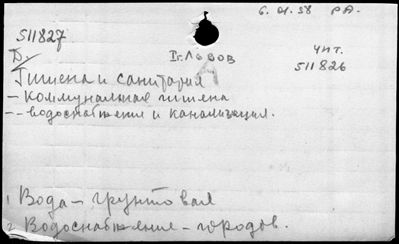 6.01.58 РА.
511827
Б. I г. Львов
чит.
511826
Гигиена и санитария
- Коммунальная гигиена
-- водоснабжение и канализация.
1 Вода - грунтовая
2 Водоснабжение - городов.